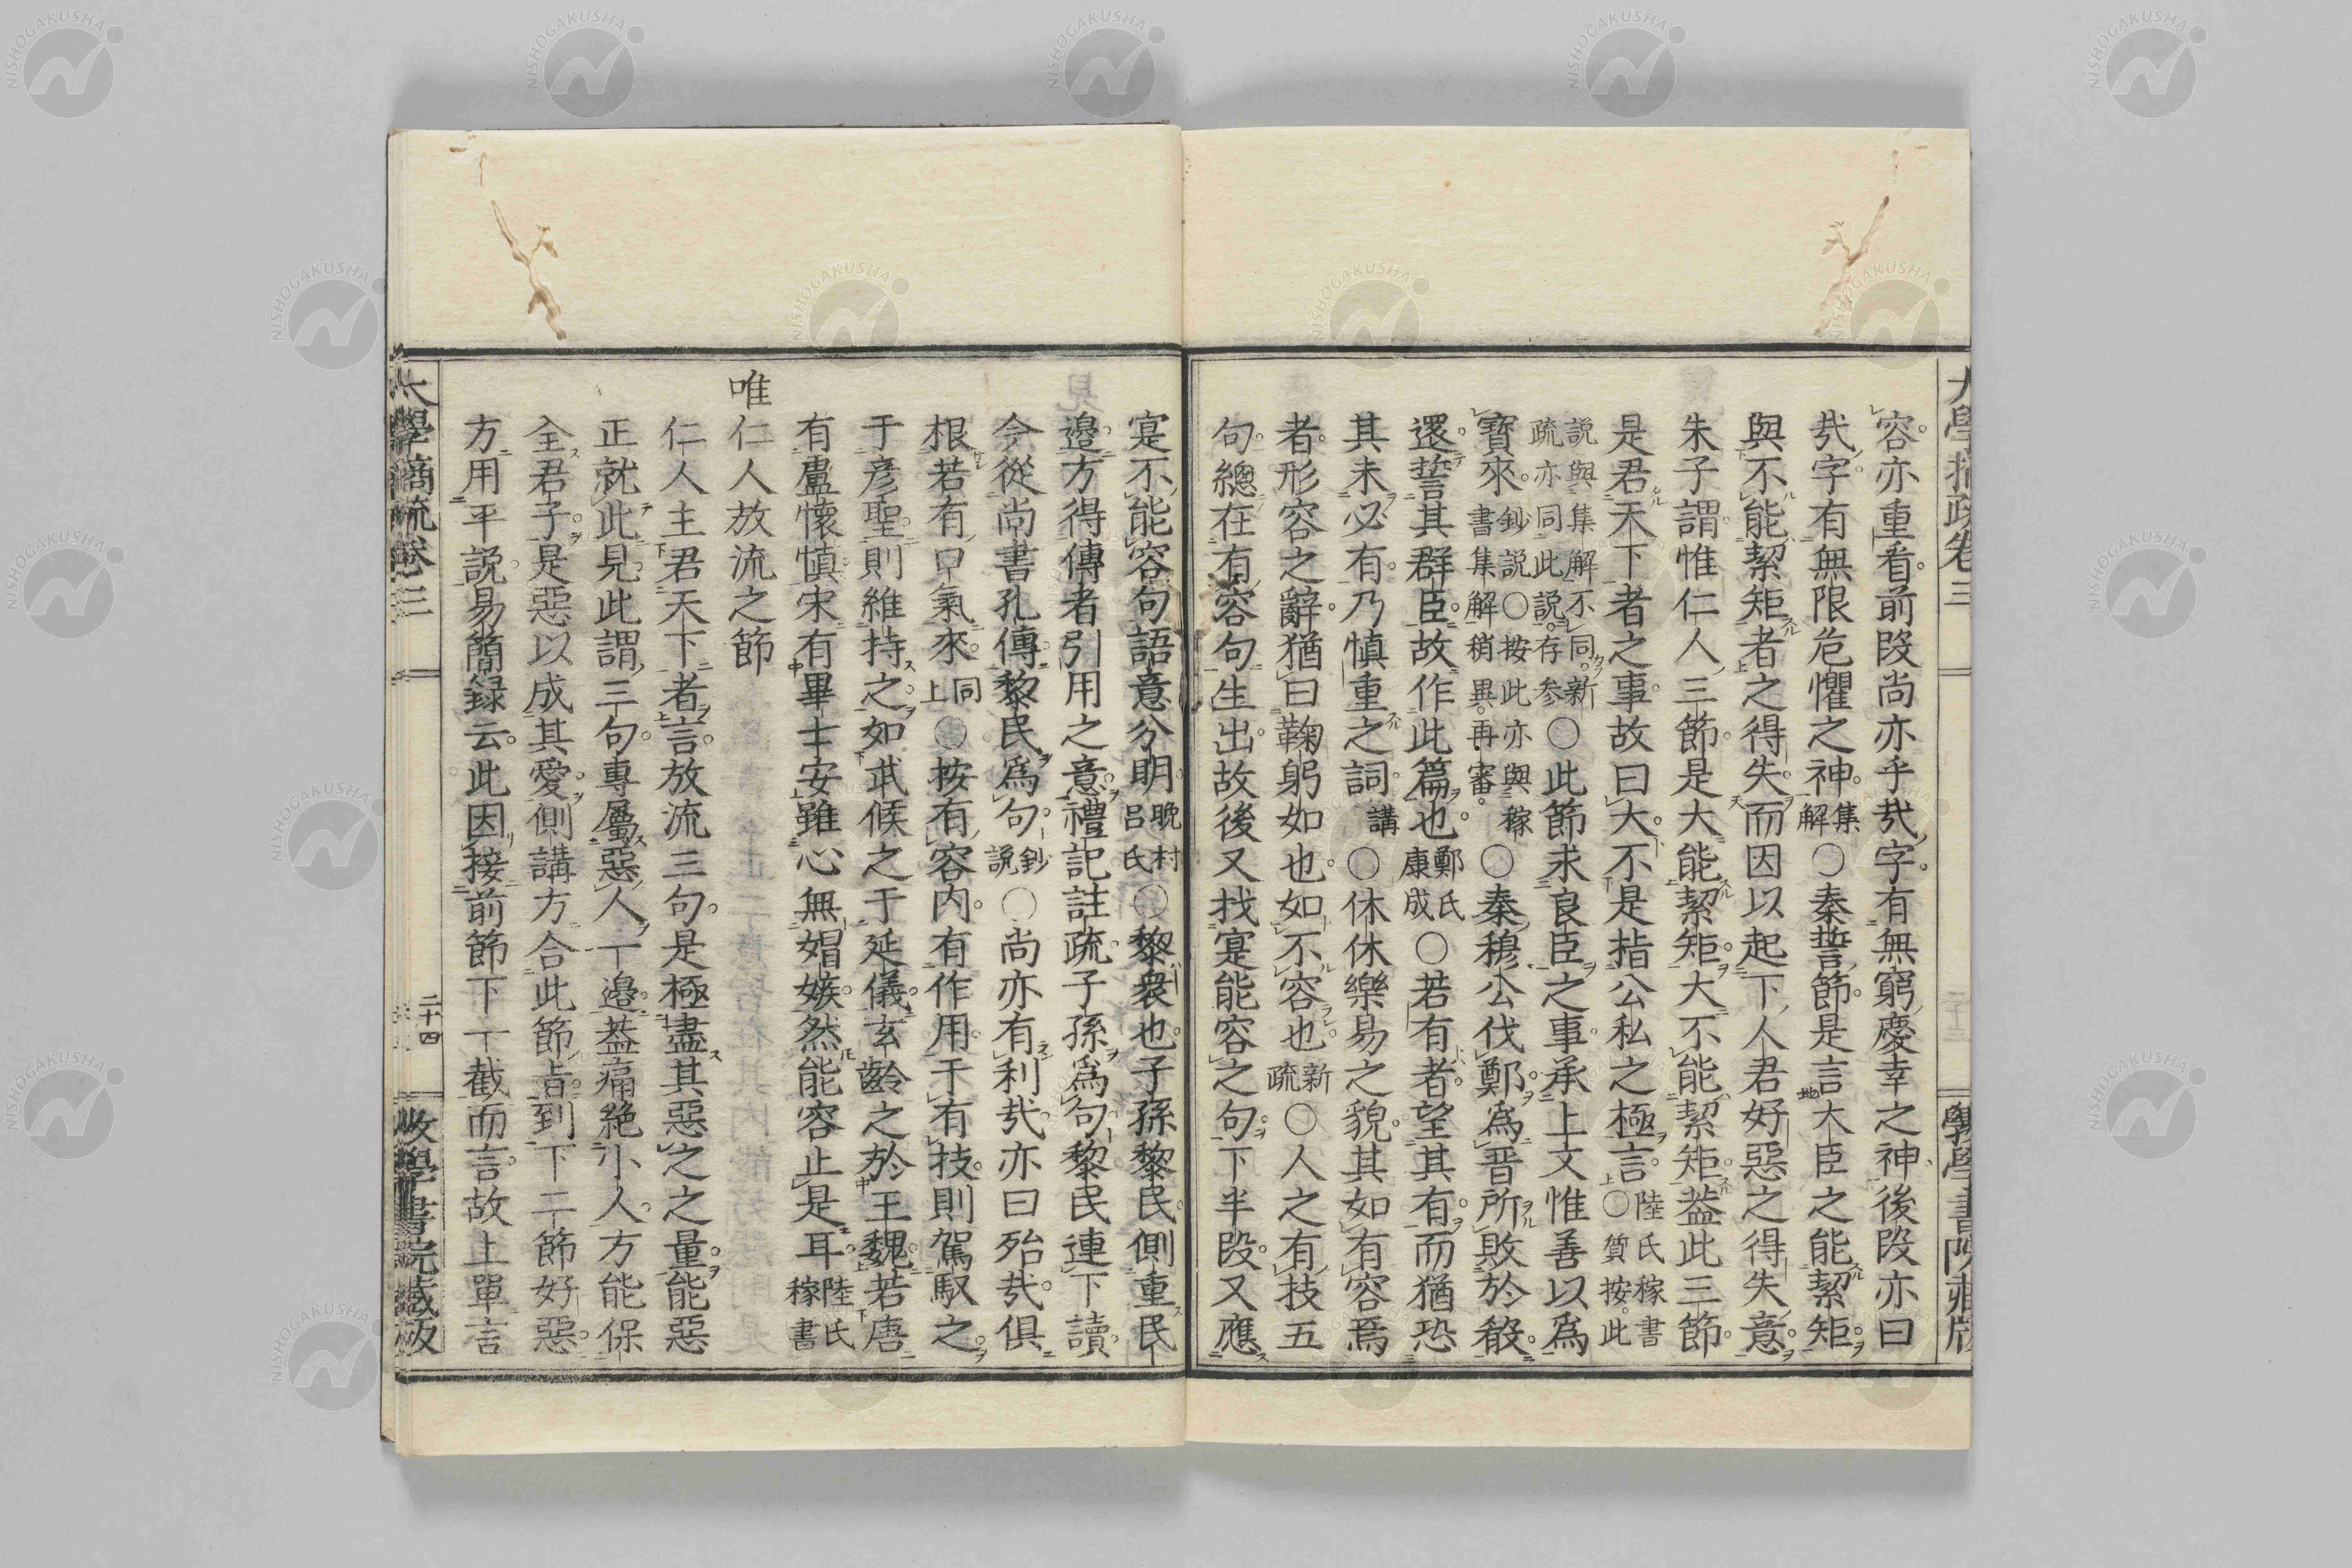 容亦重看前段尚亦乎㢤字有無窮慶幸之神後段亦曰
㢤字有無限危懼之神集解〇秦誓節是言大臣之能絜矩
與不能絜矩者之得失而因以起下人君好惡之得失意
朱子謂惟仁人三節是大能絜矩大不能絜矩葢此三節
是君天下者之事故曰大不是指公私之極言陸氏稼書〇質按此
説與集解不同新疏亦同此説存参〇此節求良臣之事承上文惟善以為
寶來鈔説〇按此亦與稼書集解稍異再審〇秦穆公伐鄭為晋所敗於殽
還誓其群臣故作此篇也鄭氏康成〇若有者望其有而猶恐
其未必有乃慎重之詞講〇休休樂易之貌其如有容焉
者形容之辭猶曰鞠躬如也如不容也新疏〇人之有技五
句總在有容句生出故後又找寔能容之句下半段又應
寔不能容句語意分明晩村呂氏〇黎衆也子孫黎民側重民
邉方得傳者引用之意禮記註疏子孫為句黎民連下讀
今從尚書孔傳黎民為句鈔説〇尚亦有利㢤亦曰殆㢤俱
根若有口氣來同上〇按有容内有作用于有技則駕馭之
于彦聖則維持之如武候之于延儀玄齡之於王魏若唐
有盧懷慎宋有畢士安雖心無媢嫉然能容止是耳陸氏稼書
唯仁人放流之節
仁人主君天下者言放流三句是極盡其惡之之量能惡
正就此見此謂三句專屬惡人一邉葢痛絶小人方能保
全君子是惡以成其愛側講方合此節㫖到下二節好惡
方用平説易簡録云此因接前節下一截而言故上單言
大學摘疏卷三
二十四